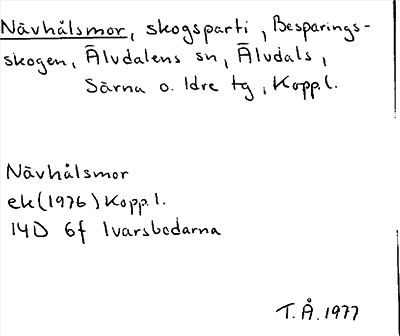 Nävhålsmor, skogsparti, Besparings-
skogen, Älvdalens sn, Älvdals,
Särna o. Idre tg, Kopp.l.
Nävhålsmor
ek (1976) Kopp.l.
14D 6f Ivarsbodarna
T.Å. 1977